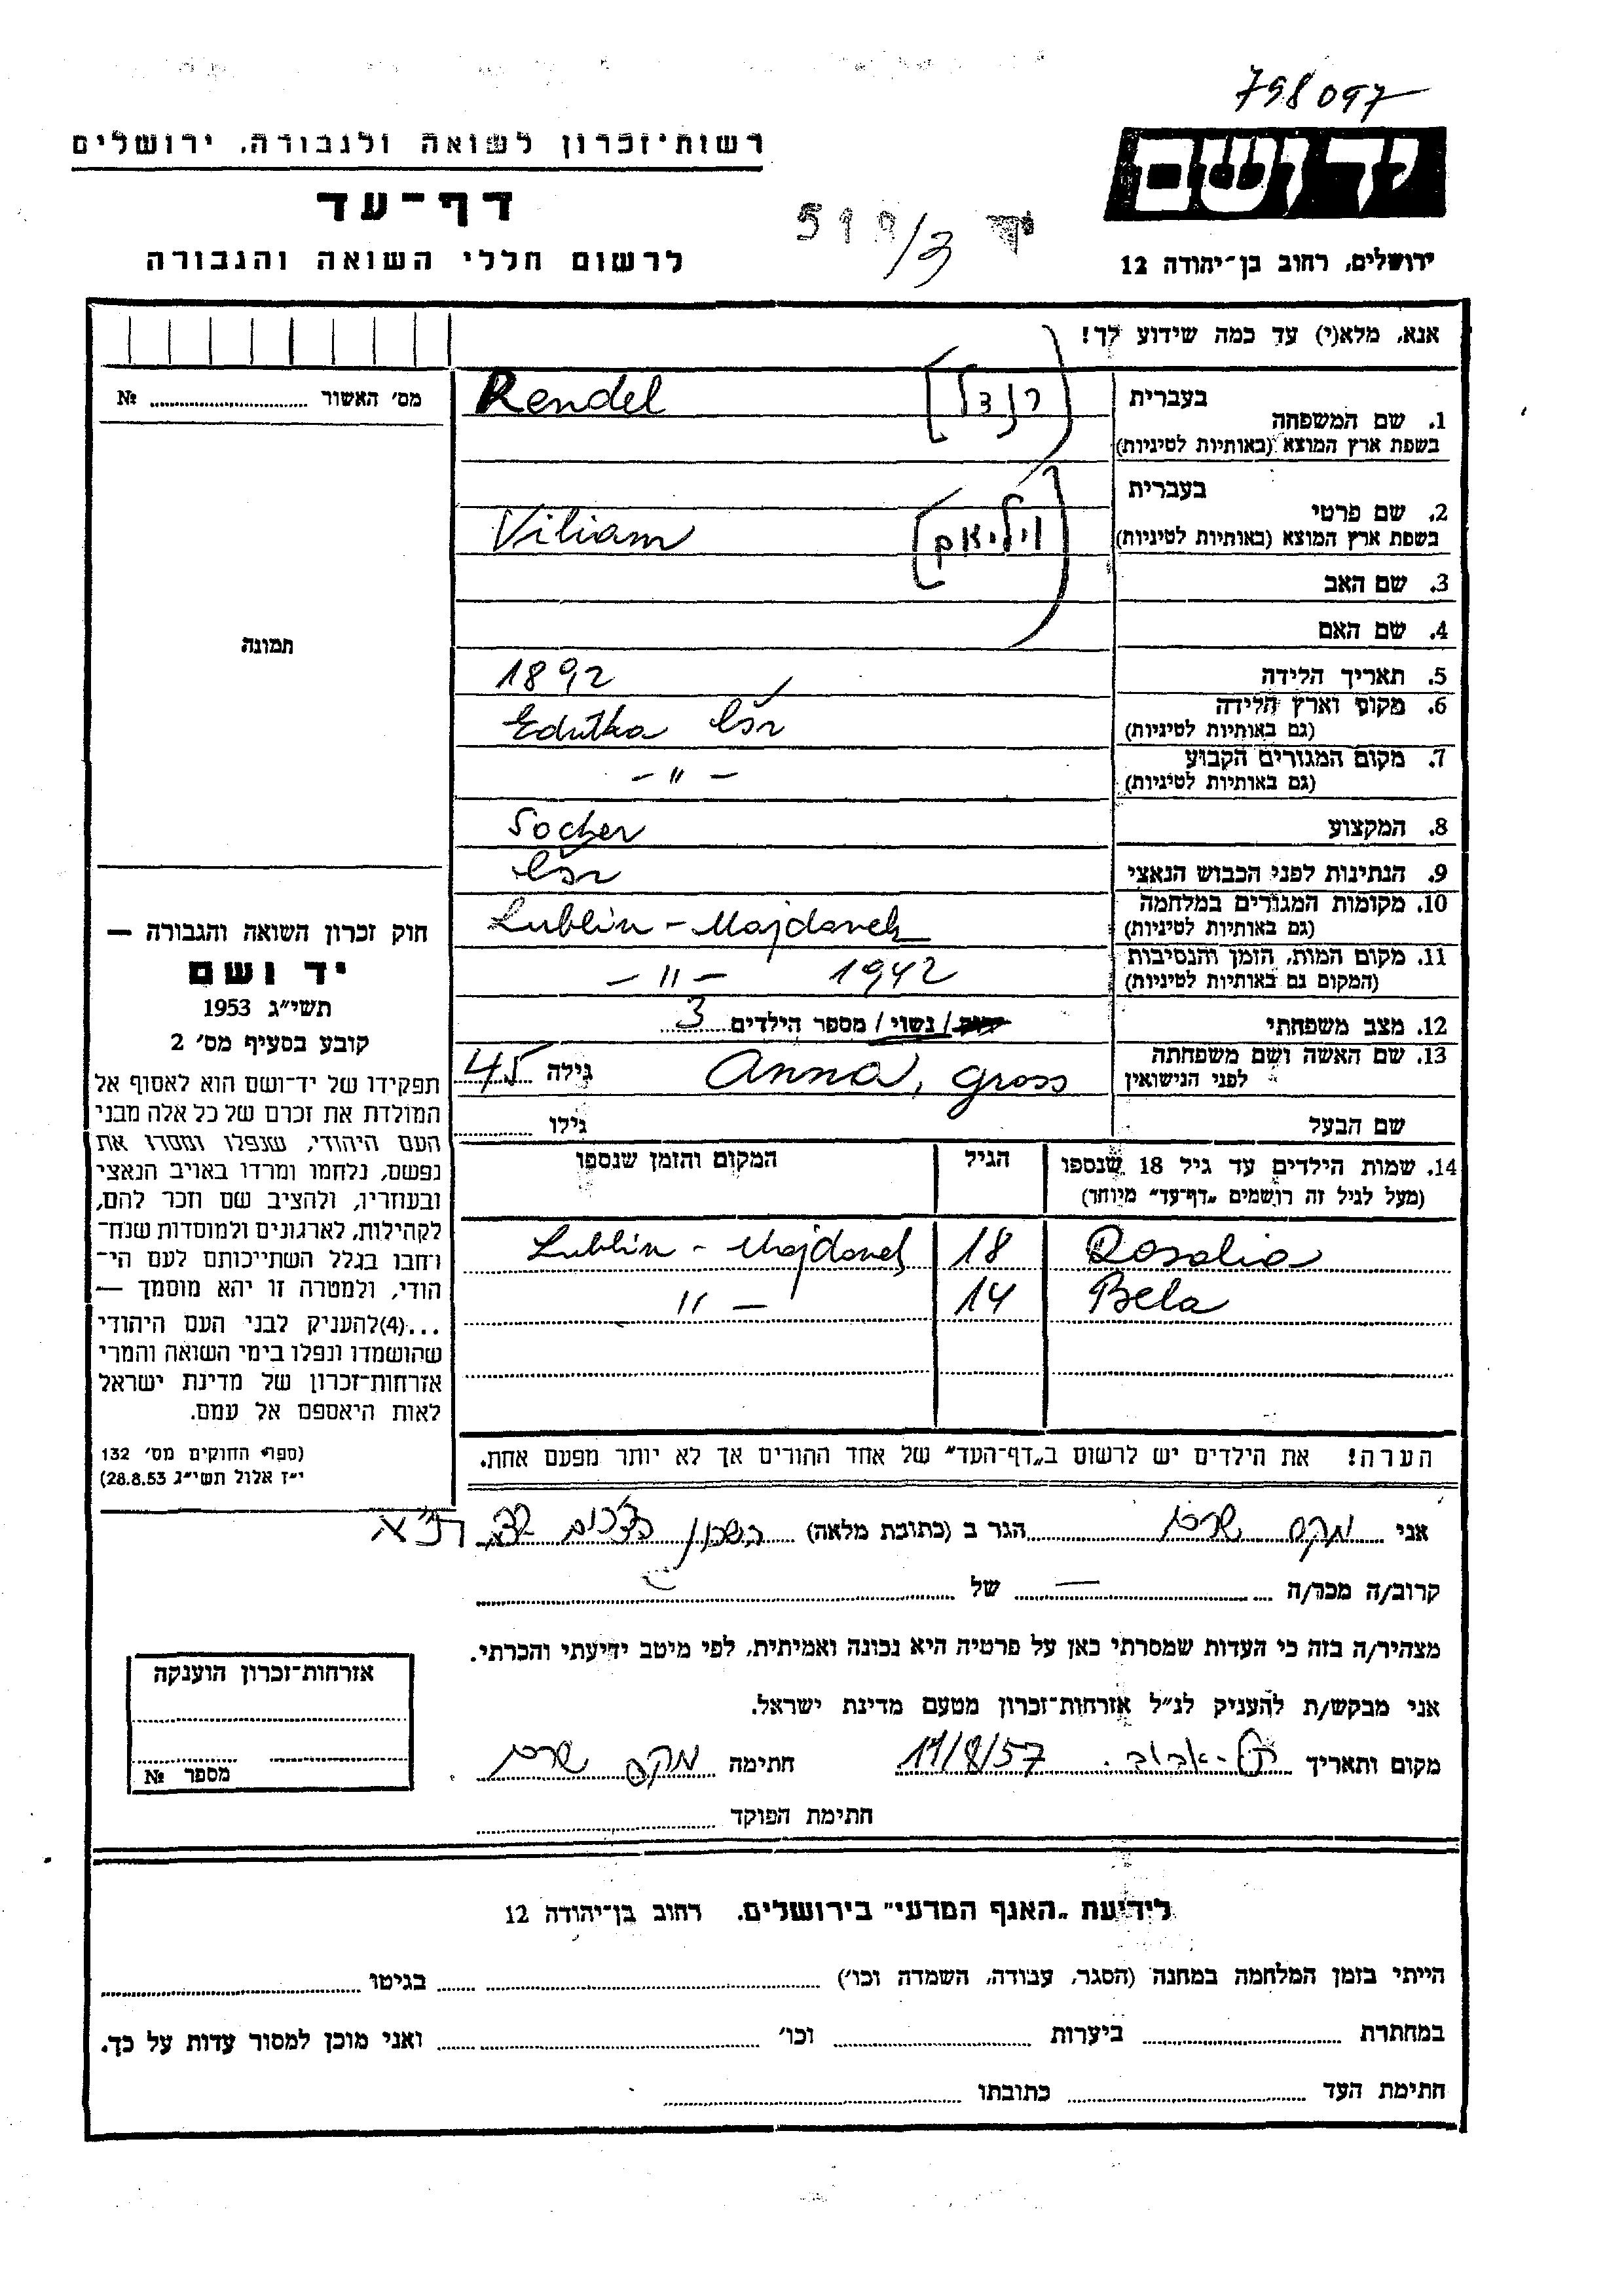 798097
יד ושם
ירושלים, רחוב בן-יהודה 12
רשות-זכרון לשואה ולגבורה, ירושלים
דף-עד
לרשום חללי השואה והגבורה
אנא, מלא(י) עד כמה שידוע לך!
מס' האשור № 
1. שם המשפחה
בעברית [רנדל]
בשפת ארץ המוצא (באותיות לטיניות) Rendel
2. שם פרטי
בעברית [ויליאם]
בשפת ארץ המוצא (באותיות לטיניות) Viliam
3. שם האב
4. שם האם
5. תאריך הלידה 1892
6. מקום וארץ הלידה (גם באותיות לטיניות) Edutka čsr
7. מקום המגורים הקבוע (גם באותיות לטיניות) -"-
8. המקצוע Socher
9. הנתינות לפני הכבוש הנאצי čsr
10. מקומות המגורים במלחמה (גם באותיות לטיניות) Lublin - Majdanek
11. מקום המות, הזמן והנסיבות (המקום גם באותיות לטיניות) -"- 1942
12. מצב משפחתי / נשוי / מספר הילדים 3
13. שם האשה ושם משפחתה לפני הנישואין Anna, Gross גילה 45
שם הבעל גילו
14. שמות הילדים עד גיל 18 שנספו הגיל המקום והזמן שנספו
(מעל לגיל זה רושמים "דף-עד" מיוחד)
Rosalia 18 Lublin - Majdanek
Bela 14 -"
הערה! את הילדים יש לרשום ב"דף-העד" של אחד ההורים אך לא יותר מפעם אחת.
תמונה
חוק זכרון השואה והגבורה —
יד ושם
תשי"ג 1953
קובע בסעיף מס' 2
תפקידו של יד-ושם הוא לאסוף אל
המולדת את זכרם של כל אלה מבני
העם היהודי, שנפלו ומסרו את
נפשם, נלחמו ומרדו באויב הנאצי
ובעוזריו, ולהציב שם וזכר להם,
לקהילות, לארגונים ולמוסדות שנח-
רחבו בגלל השתייכותם לעם הי-
הודי, ולמטרה זו יהא מוסמך —
...(4)להעניק לבני העם היהודי
שהושמדו ונפלו בימי השואה והמרי
אזרחות-זכרון של מדינת ישראל
לאות היאספם אל עמם.
(ספר החוקים מס' 132
י"ז אלול תשי"ג 28.8.53)
אני הגר ב (כתובת מלאה)
קרוב/ה מכר/ה — של
מצהיר/ה בזה כי העדות שמסרתי כאן על פרטיה היא נכונה ואמיתית, לפי מיטב ידיעתי והכרתי.
אני מבקש/ת להעניק לנ"ל אזרחות-זכרון מטעם מדינת ישראל.
מקום ותאריך תל-אביב. 11/8/57 חתימה
חתימת הפוקד
אזרחות-זכרון הוענקה
מספר №
לידיעת "האגף המדעי" בירושלים, רחוב בן-יהודה 12
הייתי בזמן המלחמה במחנה (הסגר, עבודה, השמדה וכו') בגיטו
במחתרת ביערות וכו' ואני מוכן למסור עדות על כך.
חתימת העד כתובתו